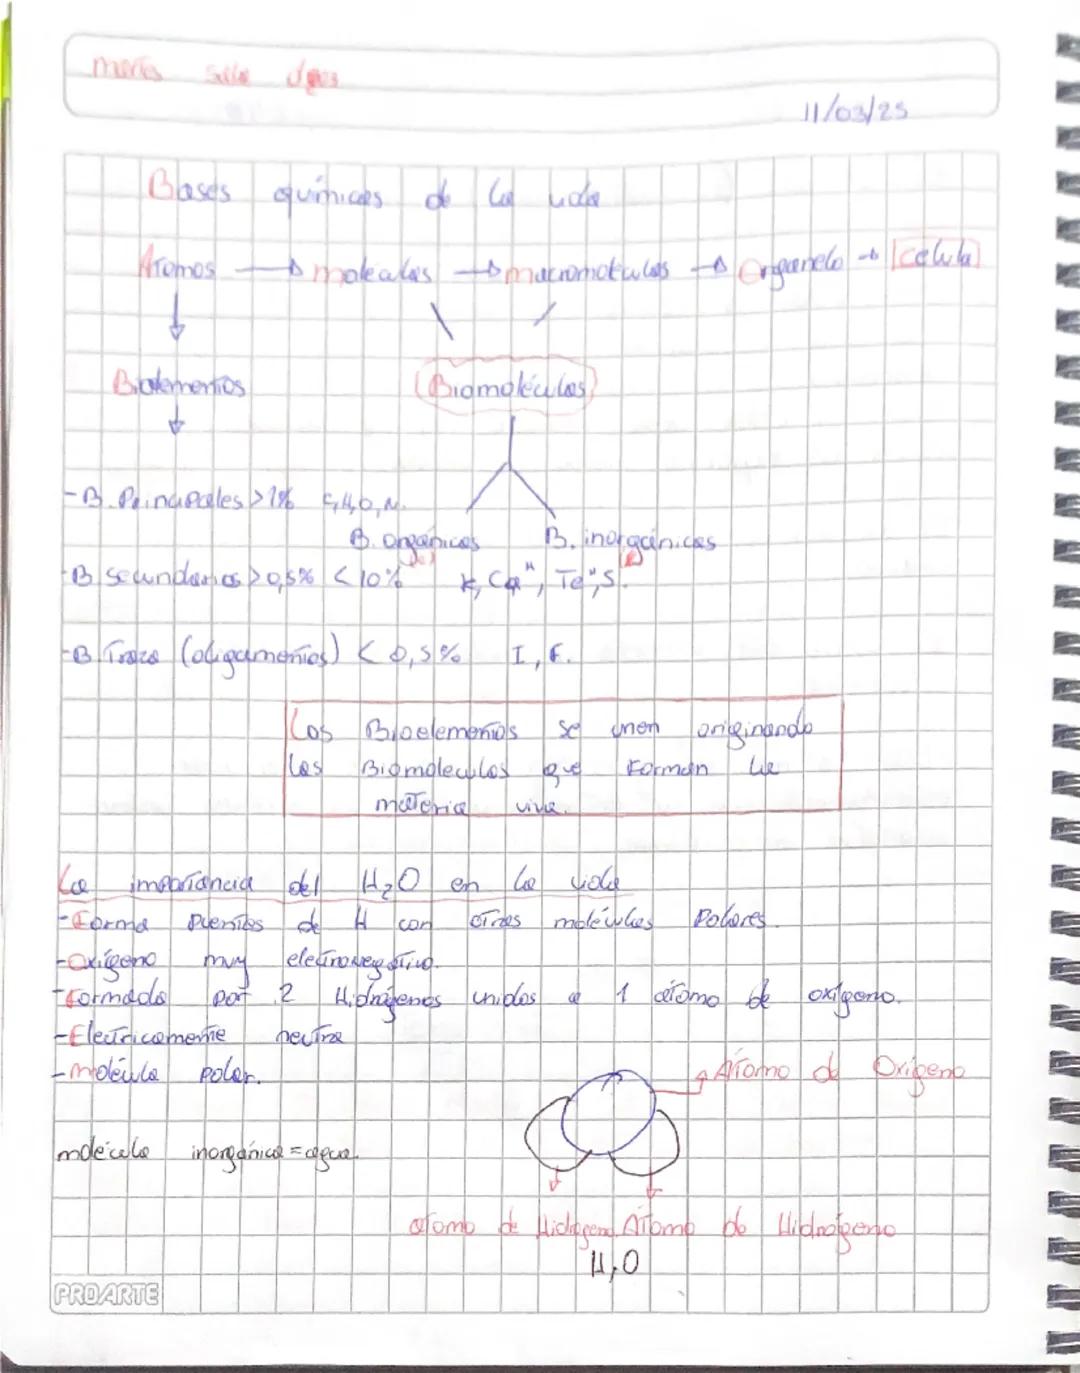 11/03/25
Bases químicas de la vida
Atomos → moleculas → macromoleculas → Organelo → celula
Bioelementos
Biomoléculas
-B. Principales >1% C,H,O,N.
B. organicas B. inorgánicas
-B secundarios >0,5% <10% K, Ca", Te",S.
-B Traza (oligamentos) <0,5% I, F.
Los Bioelementos se unen originando
las Biomoleculas que Forman la
materia viva.
La importancia del H₂O en la vida
-Forma puentes de H con otras moléculas Polares.
-Oxígeno muy electronegativo.
-Formada por 2 Hidrógenos unidos a 1 átomo de oxígeno.
-Electricamente neutra
-molécula polar.
Atomo de Oxigeno
molécula inorgánica = agua.
atomo de Hidrogeno Atomo de Hidrógeno
H₂O
PROARTE